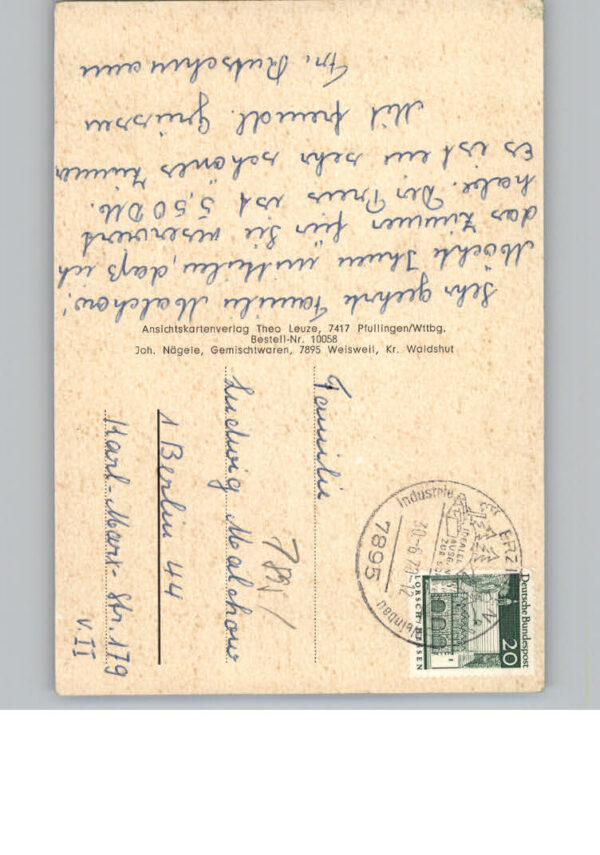 Sehr geehrte Familie Malchow!
Möchte Ihnen mitteilen, daß ich
das Zimmer für Sie reserviert
habe. Der Preis ist 5,50 DM.
Es ist ein sehr schönes Zimmer
Mit freundl. Grüssen
Fr. Rutschmann
Ansichtskartenverlag Theo Leuze, 7417 Pfullingen/Wttbg.
Bestell-Nr. 10058
Joh. Nägele, Gemischtwaren, 7895 Weisweil, Kr. Waldshut
Familie
Ludwig Malchow
1 Berlin 44
Karl-Marx-Str. 179
v. II
7891
7895 ERZI
30.-6.70-12
Industrie
IDEALER
AUSG
ZUR
Deutsche Bundespost
20
LORSCH/HESSEN